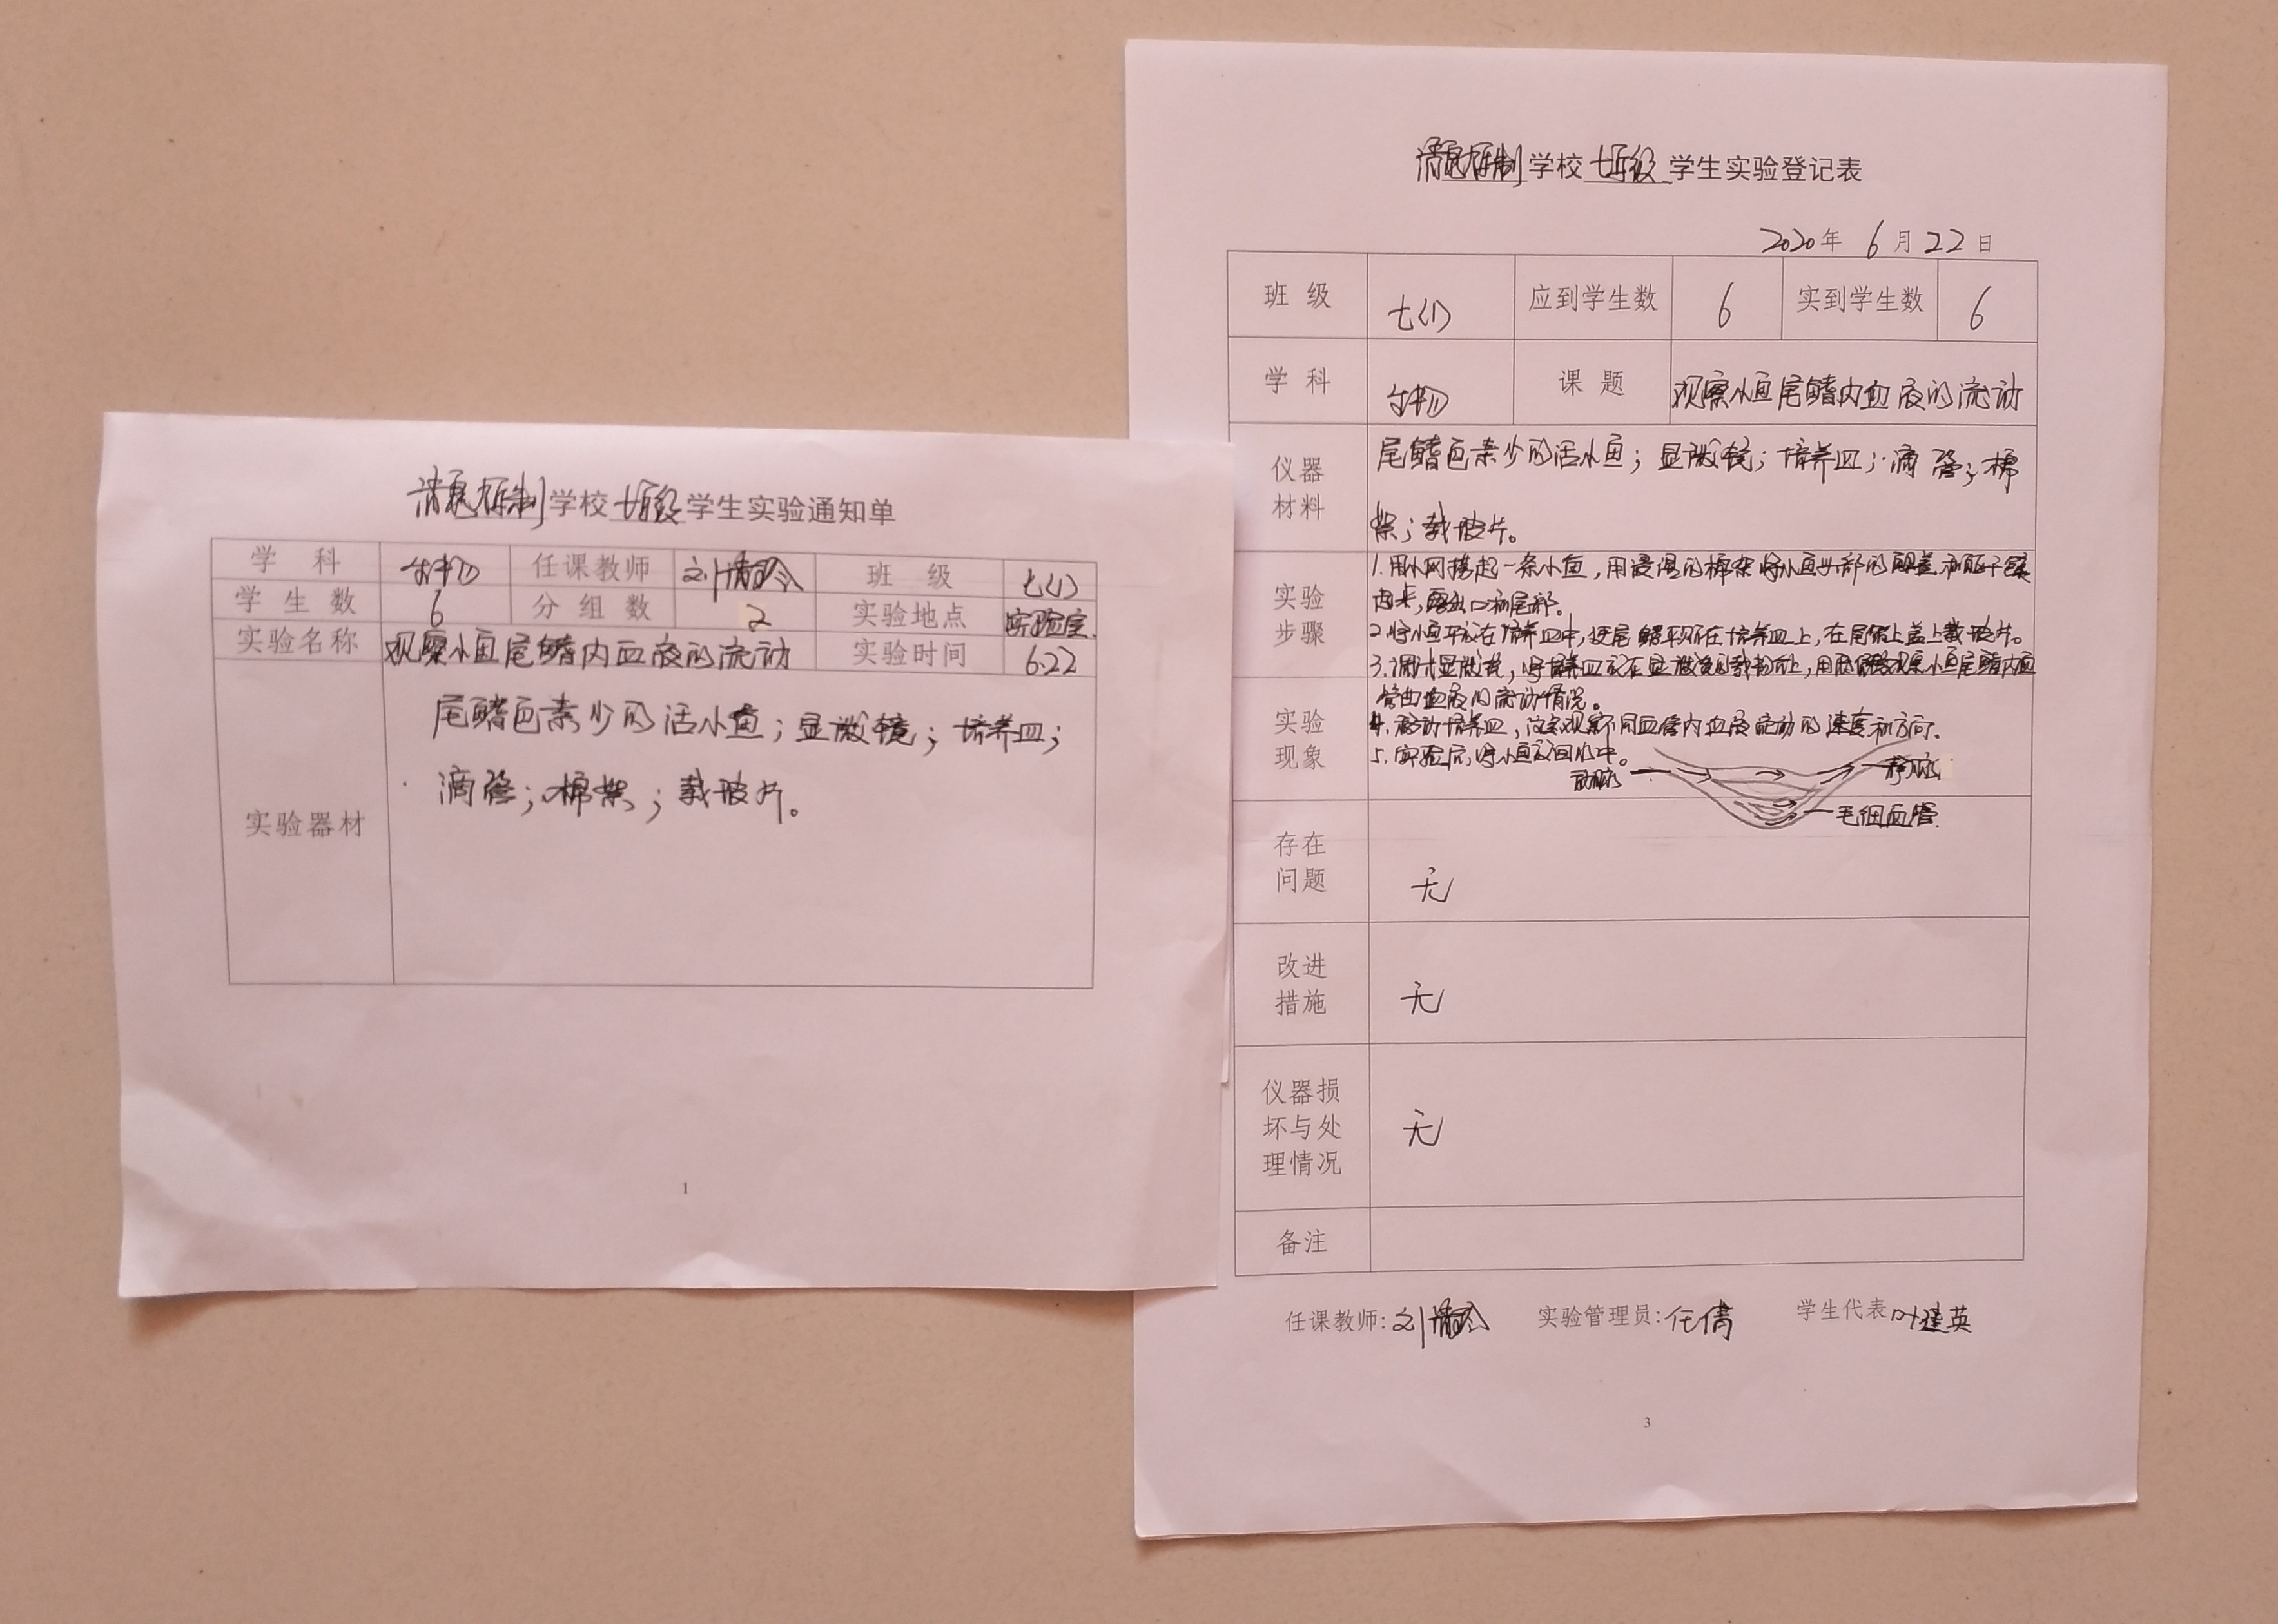 学校 七年级 学生实验通知单
学 科 生物 任课教师 刘 班 级 七(1)
学 生 数 6 分 组 数 2 实验地点 实验室
实验名称 观察小鱼尾鳍内血液的流动 实验时间 6.22
实验器材
尾鳍色素少的活小鱼；显微镜；培养皿；
滴管；棉絮；载玻片。
1
学校 七年级 学生实验登记表
2020年 6月22日
班 级 七(1) 应到学生数 6 实到学生数 6
学 科 生物 课 题 观察小鱼尾鳍内血液的流动
仪器
材料
尾鳍色素少的活小鱼；显微镜；培养皿；滴管；棉
絮；载玻片。
实验
步骤
1.用小网捞起一条小鱼，用浸湿的棉絮将小鱼头部的鳃盖和躯干包裹
起来，露出口和尾部。
2.将小鱼平放在培养皿中，使尾鳍平贴在培养皿上，在尾鳍上盖上载玻片。
3.调试显微镜，将培养皿放在显微镜的载物台上，用低倍镜观察小鱼尾鳍内血
管中血液的流动情况。
实验
现象
4.移动培养皿，观察不同血管内血液流动的速度和方向。
5.实验后，将小鱼放回水中。
动脉
静脉
毛细血管
存在
问题
无
改进
措施
无
仪器损
坏与处
理情况
无
备注
任课教师:刘 实验管理员:任倩 学生代表 叶 英
3